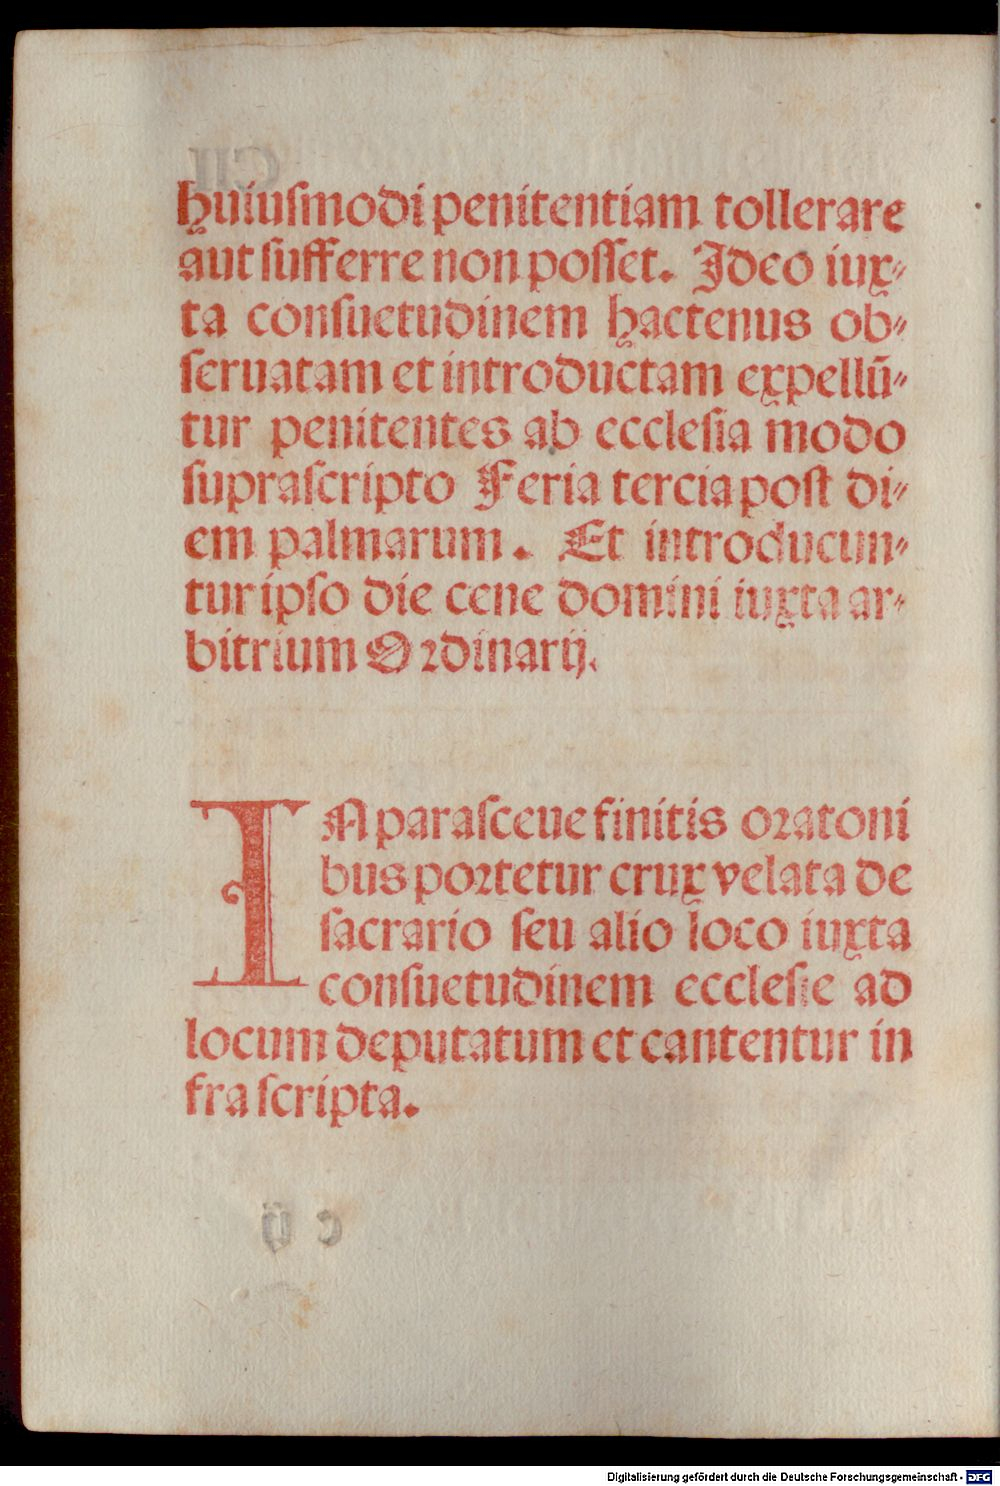 huiuſmodi penitentiam tollerare
aut ſufferre non poſſet. Ideo iux⸗
ta conſuetudinem hactenus ob⸗
ſeruatam et introductam expellū⸗
tur penitentes ab eccleſia modo
ſupraſcripto Feria tercia poſt di⸗
em palmarum. Et introducun⸗
tur ipſo die cene domini iuxta ar⸗
bitrium Ordinarij.
IN paraſceue finitis oꝛatoni
bus poꝛtetur crux velata de
ſacrario ſeu alio loco iuxta
conſuetudinem eccleſie ad
locum deputatum et cantentur in
fra ſcripta.
Digitalisierung gefördert durch die Deutsche Forschungsgemeinschaft - DFG